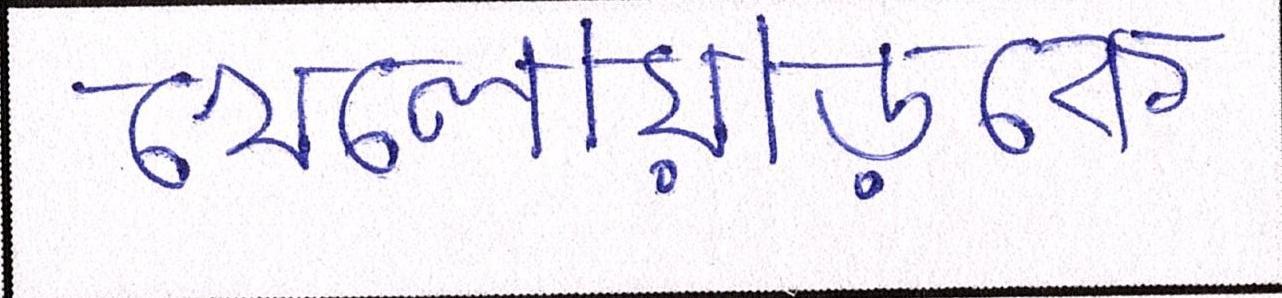 খেলোয়াড়কে